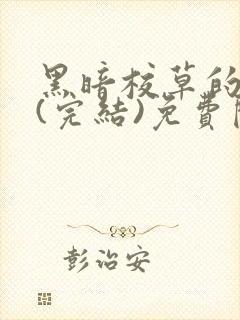 黑暗校草的
(完結)免費
彭治安